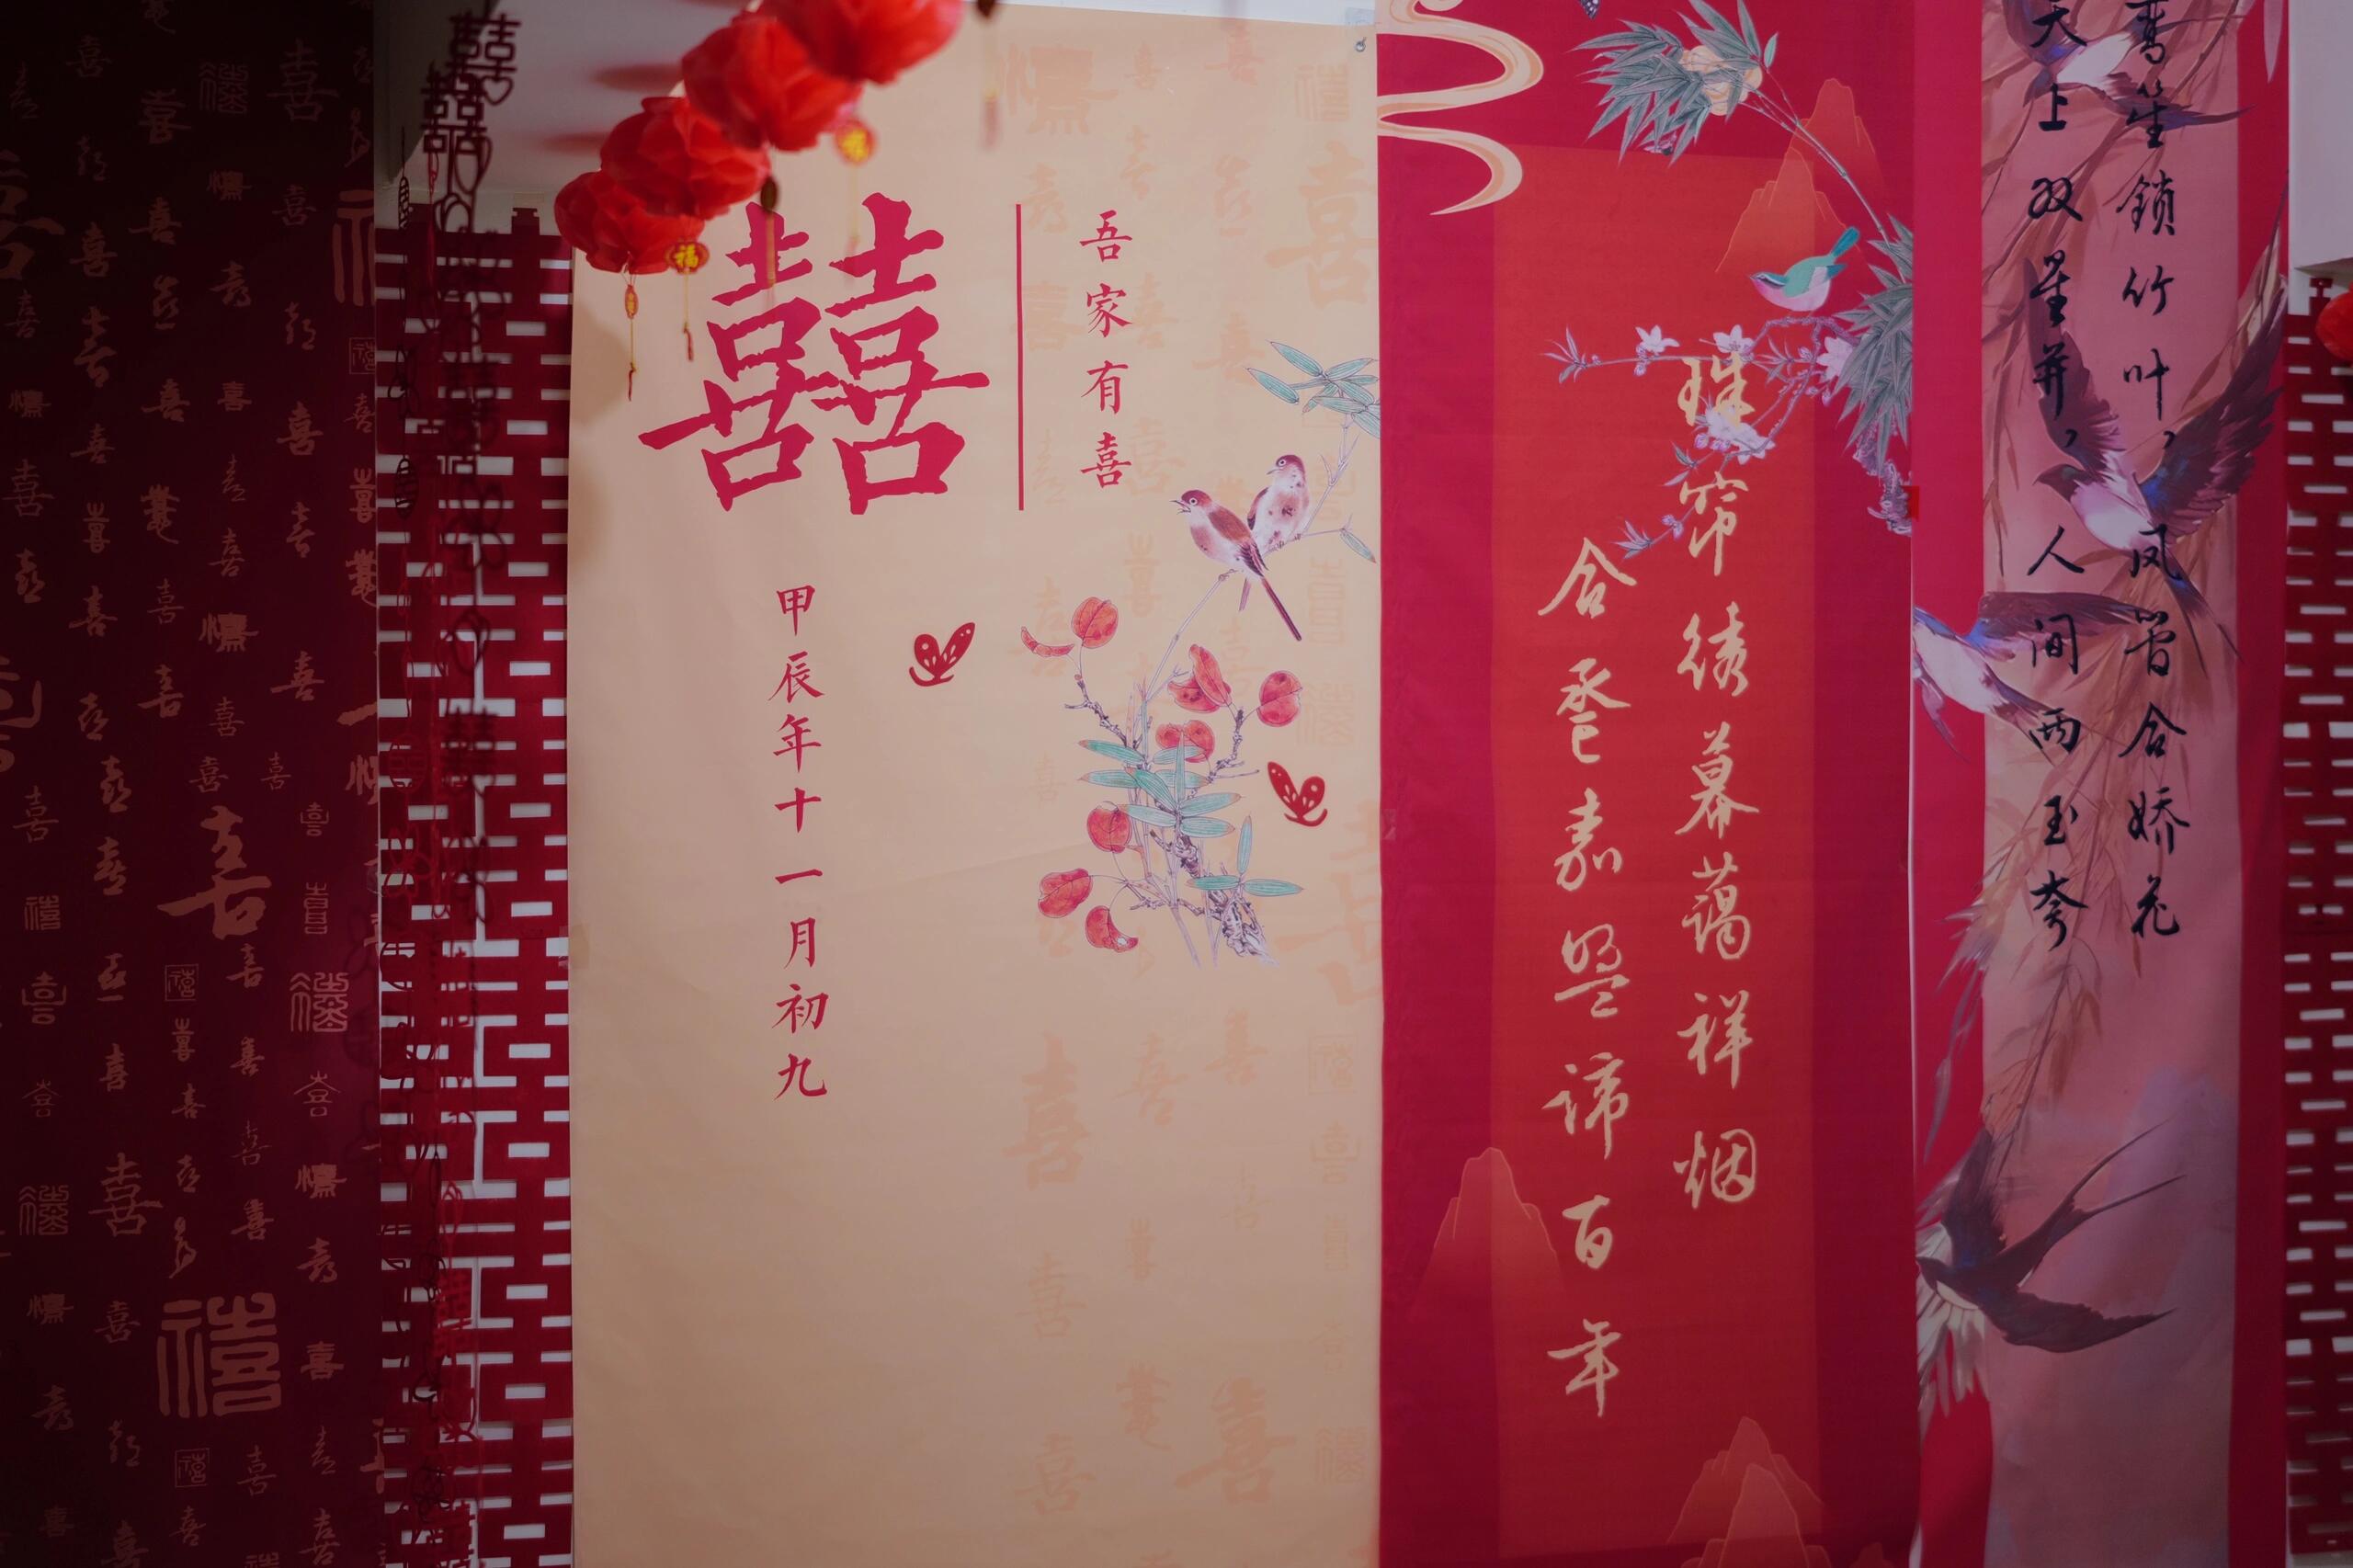 鸾笙鎖竹叶，凤管合娇花
天上双星并，人间两玉夸
珠帘绣幕蔼祥烟
合卺嘉盟谛百年
吾家有喜
囍
甲辰年十一月初九
福